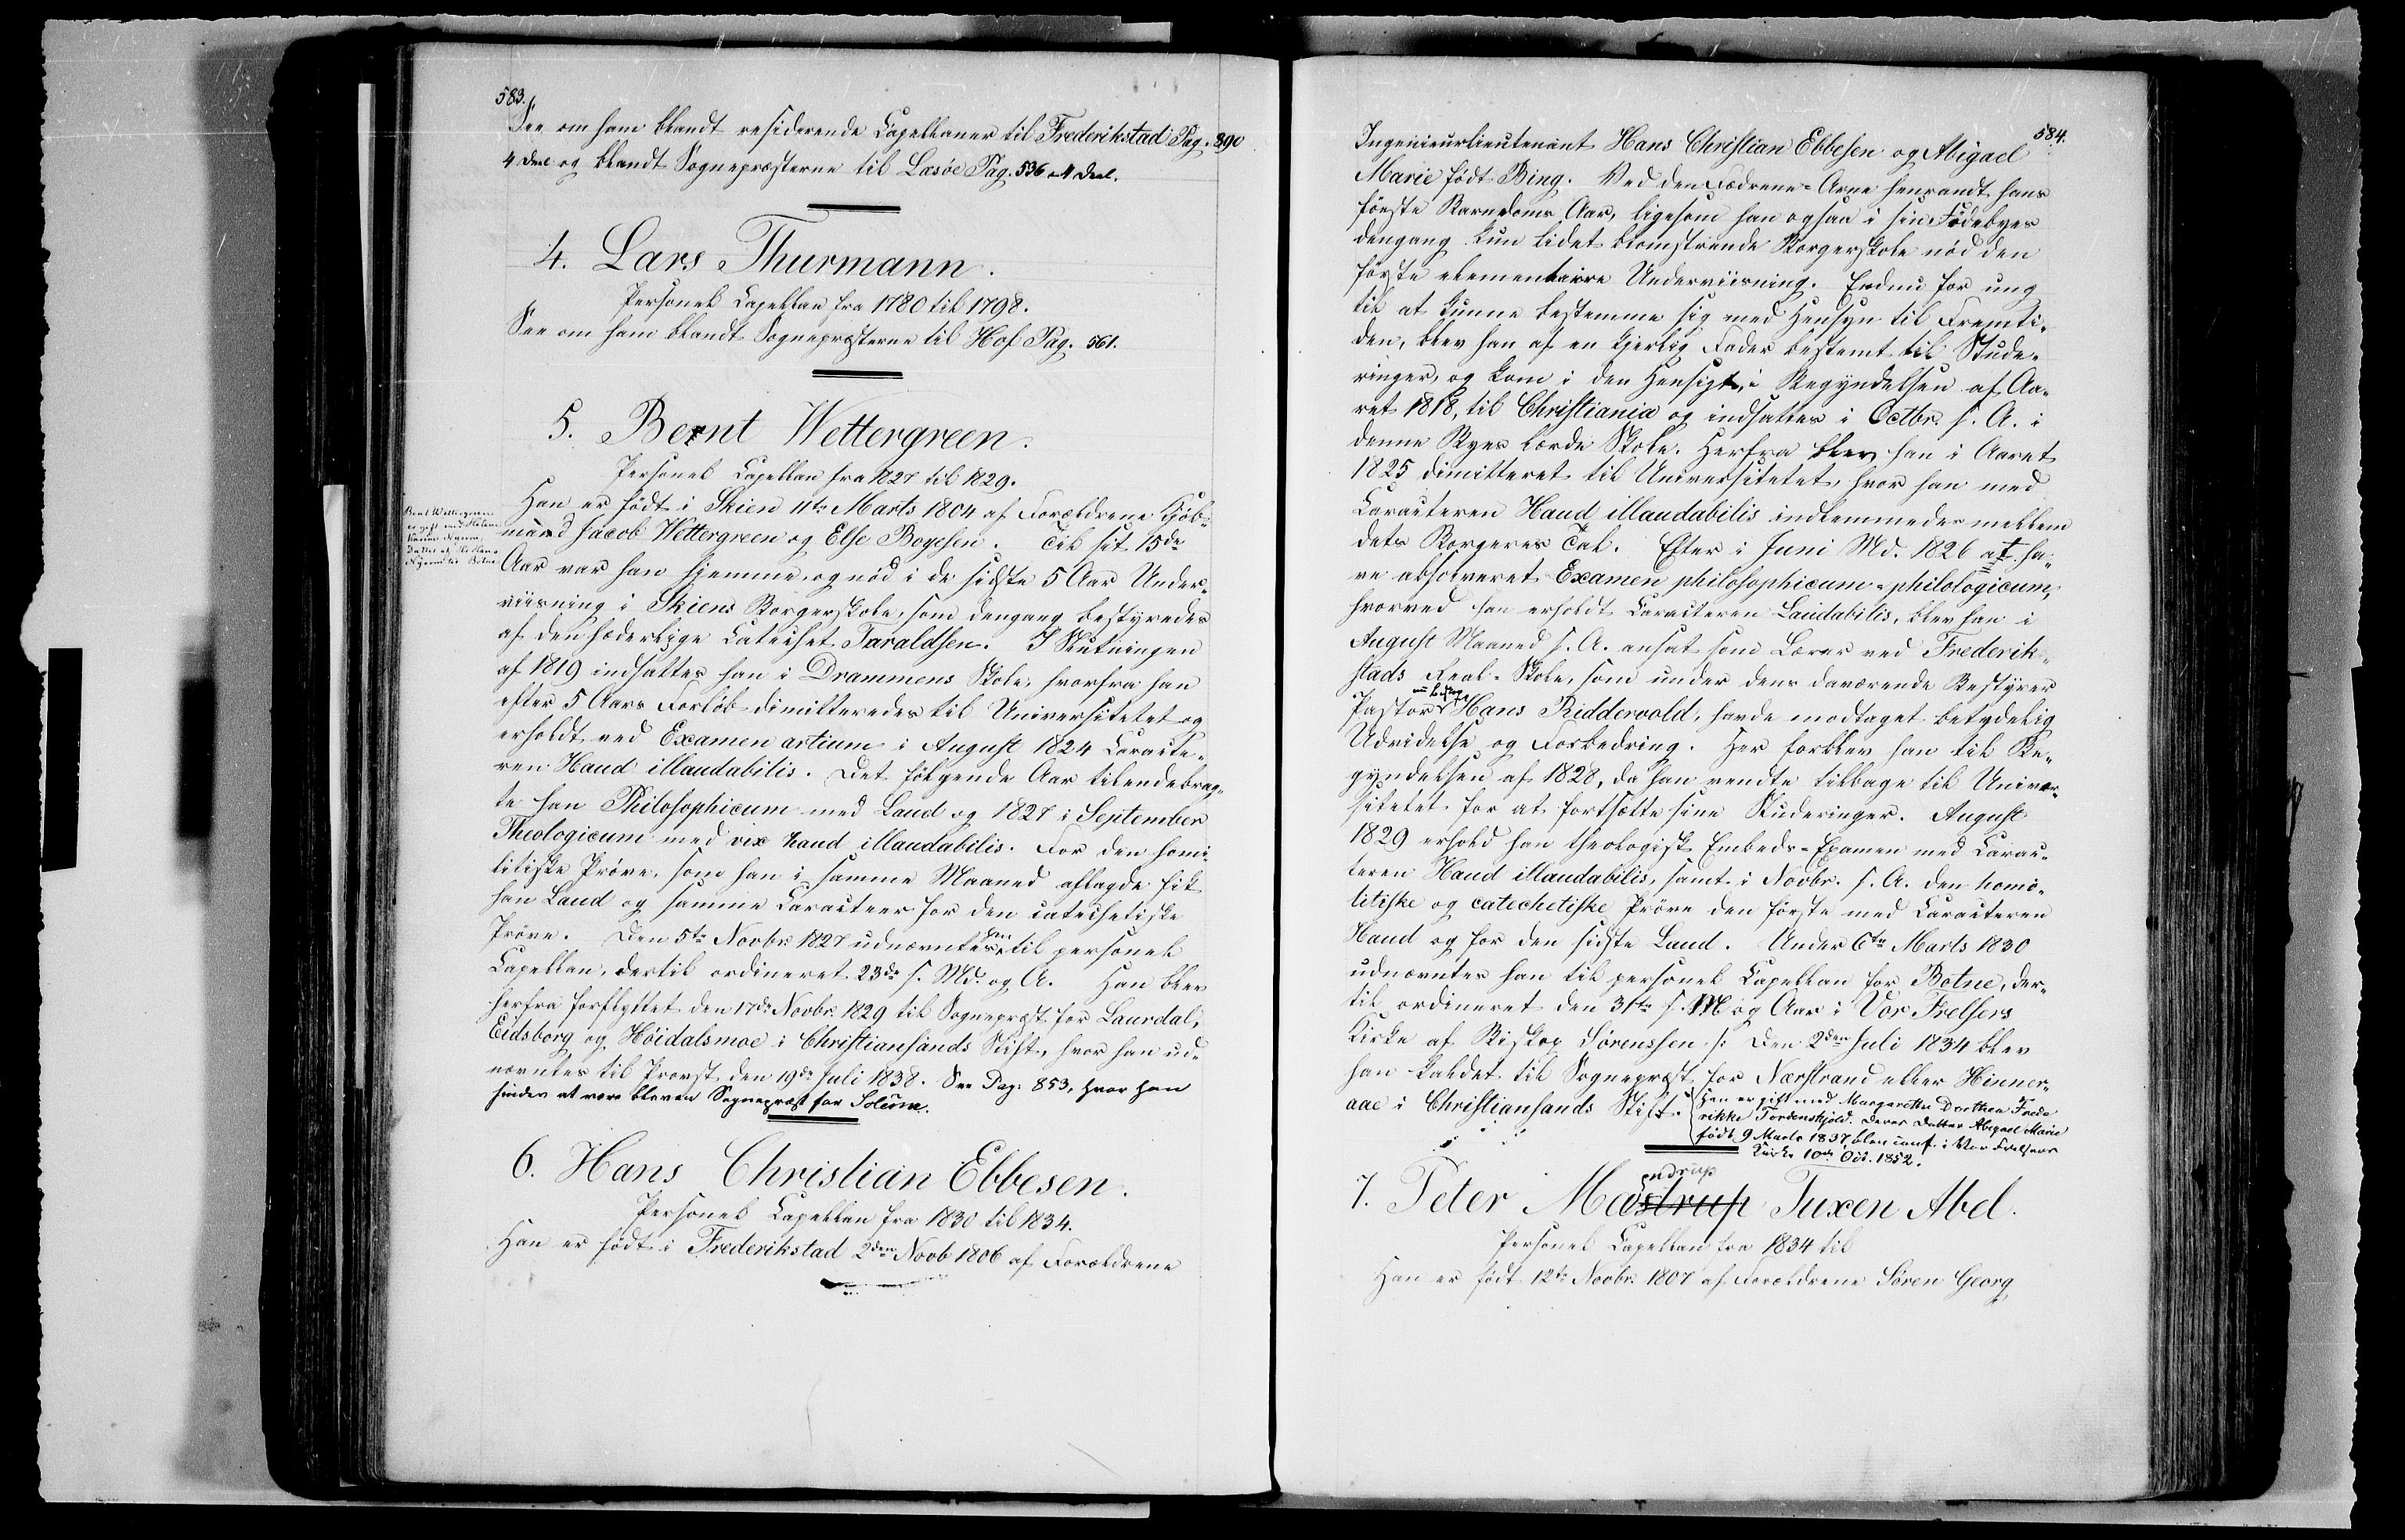 583.
See om ham blandt residerende Capellaner til Frederikstad Pag. 390
4 Deel og blandt Sognepræsterne til Læsöe Pag. 536 4 Deel.
4. Lars Thurmann.
Personel Capellan fra 1780 til 1798.
See om ham blandt Sognepræsterne til Hof Pag. 561.
5. Bernt Wettergreen.
Personel Capellan fra 1827 til 1829.
Han er født i Skien 11te Marts 1804 af Forældrene Kjöb-
mand Jacob Wettergreen og Else Boyesen. Til sit 15de
Aar var han hjemme, og nöd i de sidste 5 Aar Under-
viisning i Skiens Borgerskole, som dengang bestyredes
af den hæderlige Catechet Taraldsen. I Slutningen
af 1819 indsattes han i Drammens Skole, hvorfra han
efter 5 Aars Forløb dimitteredes til Universitetet og
erholdt ved Examen artium i August 1824 Caracte-
ren Haud illaudabilis. Det følgende Aar tilendebrag-
te han Philosophicum med Laud og 1827 i September
Theologicum med vix haud illaudabilis. For den homi-
litiske Prøve, som han i samme Maaned aflagde fik
han Laud og samme Caracteer for den catechetiske
Prøve. Den 5te Novbr. 1827 udnævntes han til personel
Capellan, dertil ordineret 23de s. Md. og A. Han blev
herfra forflyttet den 17de Novbr. 1829 til Sognepræst for Laurdal,
Eidsborg og Höidalsmoe i Christiansands Stift, hvor han ud-
nævntes til Provst den 19de Juli 1838. See Pag. 853, hvor han
findes at være bleven Sognepræst for Solum.
Bent Wettergreen
er gift med Helene
Datter af
til Botne
6. Hans Christian Ebbesen.
Personel Capellan fra 1830 til 1834.
Han er født i Frederikstad 2den Novb 1806 af Forældrene
584.
Ingenieurlieutenant Hans Christian Ebbesen og Abigael
Marie født Bing. Ved den Fædrene-Arne henrandt hans
første Barndoms Aar, ligesom han ogsaa i sin Fødebyes
dengang kun lidet blomstrende Borgerskole nød den
første elementaire Underviisning. Endnu for ung
til at kunne bestemme sig med Hensyn til Fremti-
den, blev han af en kjerlig Fader bestemt til Stude-
ringer, og kom i den Hensigt, i Begyndelsen af Aa-
ret 1818, til Christiania og indsattes i Octbr. s. A. i
denne Byes lærde Skole. Herfra blev han i Aaret
1825 dimitteret til Universitetet, hvor han med
Caracteren Haud illaudabilis indlemmedes mellem
dets Borgeres Tal. Efter i Juni Md. 1826 at ha-
ve absolveret Examen philosophicum-philologicum,
hvorved han erholdt Caracteren Laudabilis, blev han i
August Maaned s. A. ansat som Lærer ved Frederik-
stads Real-Skole, som under dens daværende Bestyrer
Pastor nu Biskop Hans Riddervold, havde modtaget betydelig
Udvidelse og Forbedring. Her forblev han til Be-
gyndelsen af 1828, da han vendte tilbage til Univer-
sitetet for at fortsætte sine Studeringer. August
1829 erhold han theologisk Embeds-Examen med Carac-
teren Haud illaudabilis, samt i Novbr. s. A. den homi-
litiske og catechetiske Prøve den første med Caracteren
Haud og for den sidste Laud. Under 6te Marts 1830
udnævntes han til personel Capellan for Botne, der-
til ordineret den 31te s. M og Aar i Vor Frelsers
Kirke af Biskop Sørenssen. Den 2den Juli 1834 blev
han kaldet til Sognepræst for Nærstrand eller Hinner-
aae i Christiansands Stift.
Han er gift med Margarethe Dorthea Frede
rikke Tordenskjold. Deres Datter Abigael Marie
født 9 Marts 1837, blev conf. i Vor Frelsers
Kirke 10de Oct. 1852.
7. Peter Mastrup endrup Tuxen Abel.
Personel Capellan fra 1834 til
Han er født 12te Novbr. 1807 af Forældrene Søren Georg